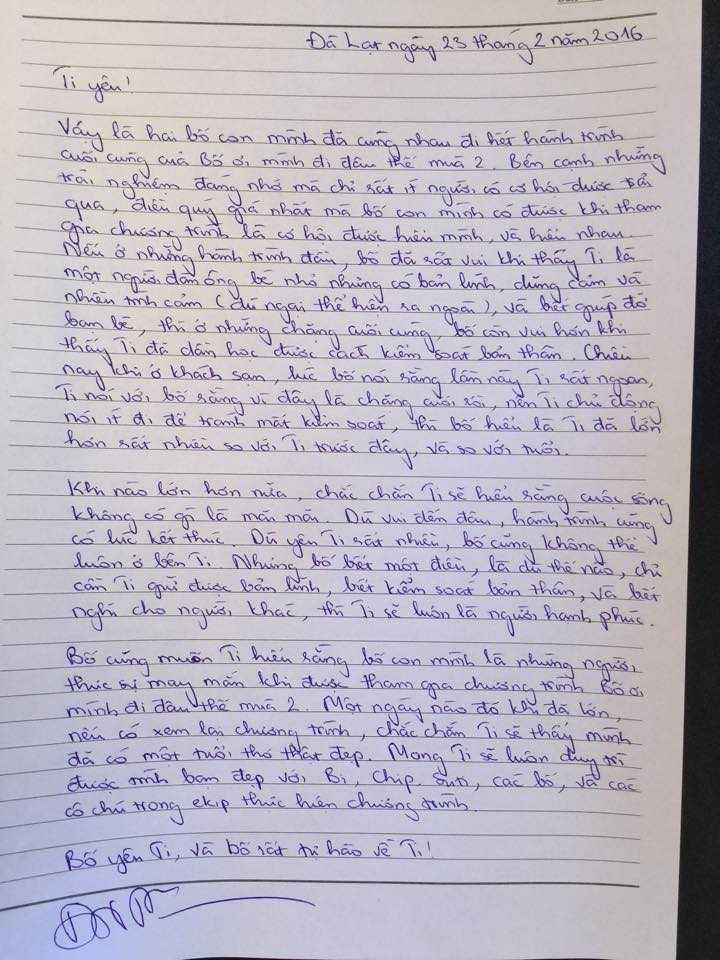 Đà Lạt ngày 23 tháng 2 năm 2016
Ti yêu!
Vậy là hai bố con mình đã cùng nhau đi hết hành trình
cuối cùng của Bố ơi mình đi đâu thế mùa 2. Bên cạnh những
trải nghiệm đáng nhớ mà chỉ rất ít người có cơ hội được trải
qua, điều quý giá nhất mà bố con mình có được khi tham
gia chương trình là cơ hội được hiểu mình, và hiểu nhau.
Nếu ở những hành trình đầu, bố đã rất vui khi thấy Ti là
một người đàn ông bé nhỏ nhưng có bản lĩnh, dũng cảm và
nhiều tình cảm (dù ngại thể hiện ra ngoài), và biết giúp đỡ
bạn bè, thì ở những chặng cuối cùng, bố còn vui hơn khi
thấy Ti đã dần học được cách kiểm soát bản thân. Chiều
nay khi ở khách sạn, lúc bố nói rằng lần này Ti rất ngoan,
Ti nói với bố rằng vì đây là chặng cuối rồi, nên Ti chủ động
nói ít đi để tránh mất kiểm soát, thì bố hiểu là Ti đã lớn
hơn rất nhiều so với Ti trước đây, và so với tuổi.
Khi nào lớn hơn nữa, chắc chắn Ti sẽ hiểu rằng cuộc sống
không có gì là mãi mãi. Dù vui đến đâu, hành trình cũng
có lúc kết thúc. Dù yêu Ti rất nhiều, bố cũng không thể
luôn ở bên Ti. Nhưng bố biết một điều, là dù thế nào, chỉ
cần Ti giữ được bản lĩnh, biết kiểm soát bản thân, và biết
nghĩ cho người khác, thì Ti sẽ luôn là người hạnh phúc.
Bố cũng muốn Ti hiểu rằng bố con mình là những người
thực sự may mắn khi được tham gia chương trình Bố ơi
mình đi đâu thế mùa 2. Một ngày nào đó khi đã lớn,
nếu có xem lại chương trình, chắc chắn Ti sẽ thấy mình
đã có một tuổi thơ thật đẹp. Mong Ti sẽ luôn duy trì
được tình bạn đẹp với Bi, Chíp, Suti, các bố, và các
cô chú trong ekip thực hiện chương trình.
Bố yêu Ti, và bố rất tự hào về Ti!